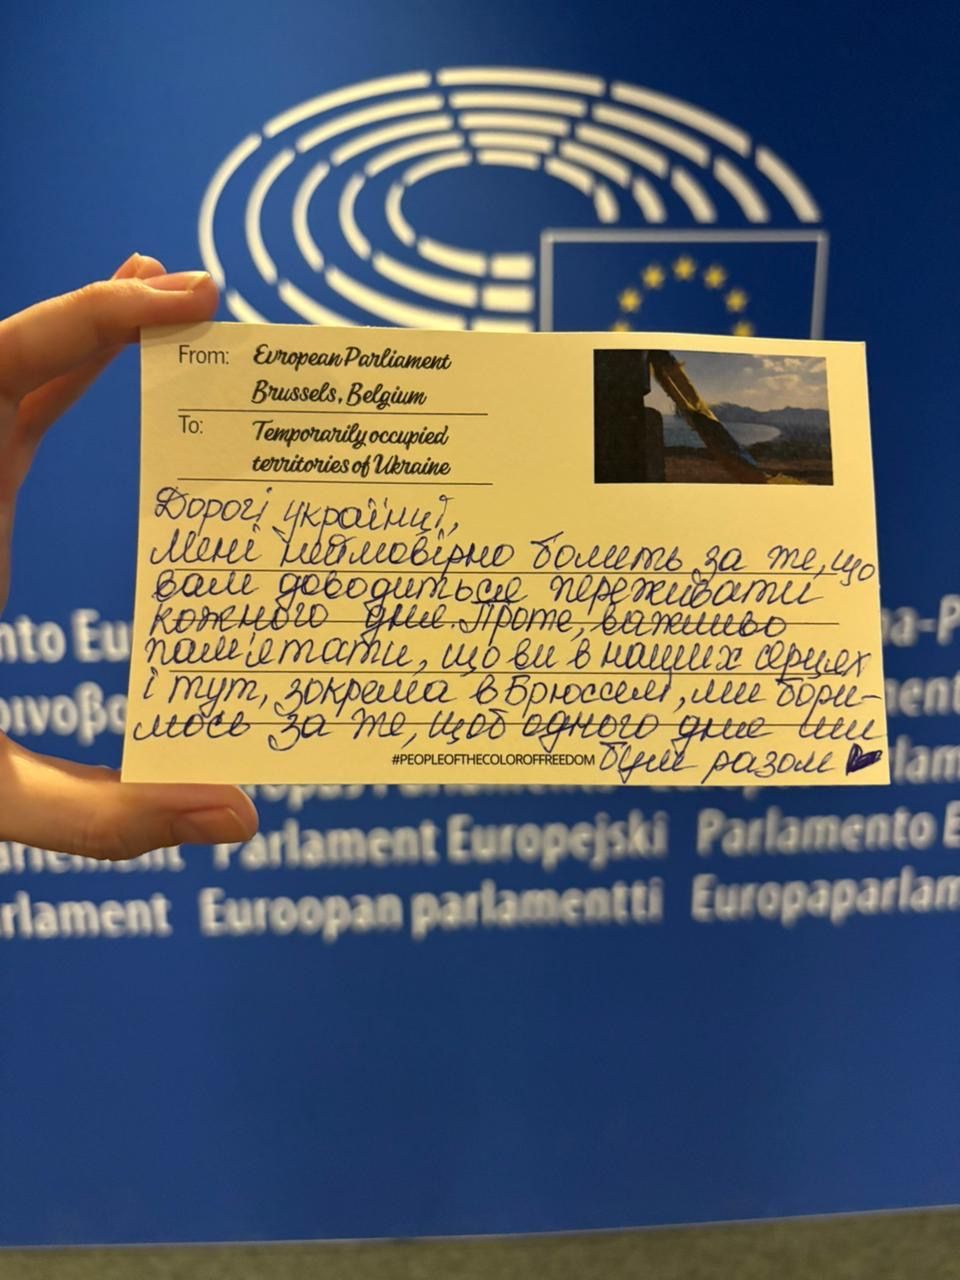 From: European Parliament
Brussels, Belgium
To: Temporarily occupied
territories of Ukraine
Дорогі українці,
Мені неймовірно болить за те, що
вам доводиться переживати
кожного дня. Проте, важливо
пам'ятати, що ви в наших серцях
і тут, зокрема в Брюсселі, ми бори-
мось за те, щоб одного дня ми
були разом
#PEOPLEOFTHECOLOROFFREEDOM
Parlament Europejski Parlamento E
rlament Euroopan parlamentti Europaparlam